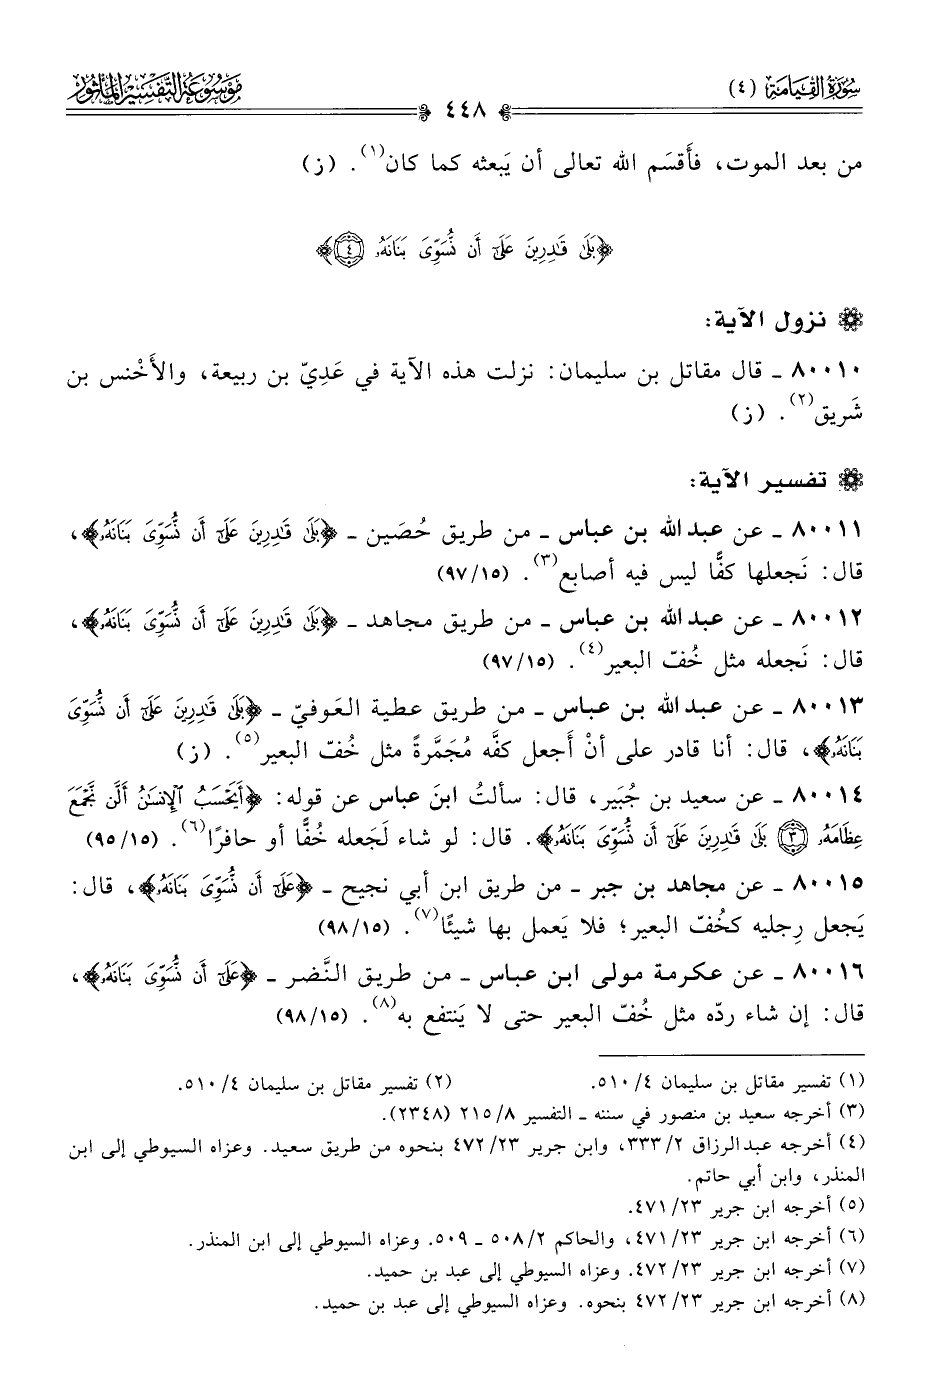 سُورَةُ القِيَامَةِ (٤)
٤٤٨
مَوْسُوعَةُ التَّفْسِيْرِ المَأْثُوْرِ
من بعد الموت، فأَقسَم الله تعالى أن يَبعثه كما كان(١). (ز)
﴿بَلَىٰ قَـٰدِرِينَ عَلَىٰٓ أَن نُّسَوِّىَ بَنَانَهُۥ ٤﴾
نزول الآية:
٨٠٠١٠ ـ قال مقاتل بن سليمان: نزلت هذه الآية في عَدِيّ بن ربيعة، والأَخْنس بن
شَريق(٢). (ز)
تفسير الآية:
٨٠٠١١ ـ عن عبد الله بن عباس ـ من طريق حُصَين ـ ﴿بَلَىٰ قَـٰدِرِينَ عَلَىٰٓ أَن نُّسَوِّىَ بَنَانَهُۥ﴾،
قال: نَجعلها كفًّا ليس فيه أصابع(٣). (٩٧/١٥)
٨٠٠١٢ ـ عن عبد الله بن عباس ـ من طريق مجاهد ـ ﴿بَلَىٰ قَـٰدِرِينَ عَلَىٰٓ أَن نُّسَوِّىَ بَنَانَهُۥ﴾،
قال: نَجعله مثل خُفّ البعير(٤). (٩٧/١٥)
٨٠٠١٣ ـ عن عبد الله بن عباس ـ من طريق عطية العَوفيّ ـ ﴿بَلَىٰ قَـٰدِرِينَ عَلَىٰٓ أَن نُّسَوِّىَ
بَنَانَهُۥ﴾، قال: أنا قادر على أنْ أَجعل كفَّه مُجَمَّرةً مثل خُفّ البعير(٥). (ز)
٨٠٠١٤ ـ عن سعيد بن جُبَير، قال: سألتُ ابنَ عباس عن قوله: ﴿أَيَحْسَبُ ٱلْإِنسَـٰنُ أَلَّن نَّجْمَعَ
عِظَامَهُۥ ٣ بَلَىٰ قَـٰدِرِينَ عَلَىٰٓ أَن نُّسَوِّىَ بَنَانَهُۥ﴾. قال: لو شاء لَجَعله خُفًّا أو حافرًا(٦). (٩٥/١٥)
٨٠٠١٥ ـ عن مجاهد بن جبر ـ من طريق ابن أبي نجيح ـ ﴿عَلَىٰٓ أَن نُّسَوِّىَ بَنَانَهُۥ﴾، قال:
يَجعل رِجليه كخُفّ البعير؛ فلا يَعمل بها شيئًا(٧). (٩٨/١٥)
٨٠٠١٦ ـ عن عكرمة مولى ابن عباس ـ من طريق النَّضر ـ ﴿عَلَىٰٓ أَن نُّسَوِّىَ بَنَانَهُۥ﴾،
قال: إن شاء ردّه مثل خُفّ البعير حتى لا يَنتفع به(٨). (٩٨/١٥)
(١) تفسير مقاتل بن سليمان ٥١٠/٤. (٢) تفسير مقاتل بن سليمان ٥١٠/٤.
(٣) أخرجه سعيد بن منصور في سننه ـ التفسير ٢١٥/٨ (٢٣٤٨).
(٤) أخرجه عبدالرزاق ٣٣٣/٢، وابن جرير ٤٧٢/٢٣ بنحوه من طريق سعيد. وعزاه السيوطي إلى ابن
المنذر، وابن أبي حاتم.
(٥) أخرجه ابن جرير ٤٧١/٢٣.
(٦) أخرجه ابن جرير ٤٧١/٢٣، والحاكم ٥٠٨/٢ ـ ٥٠٩. وعزاه السيوطي إلى ابن المنذر.
(٧) أخرجه ابن جرير ٤٧٢/٢٣. وعزاه السيوطي إلى عبد بن حميد.
(٨) أخرجه ابن جرير ٤٧٢/٢٣ بنحوه. وعزاه السيوطي إلى عبد بن حميد.